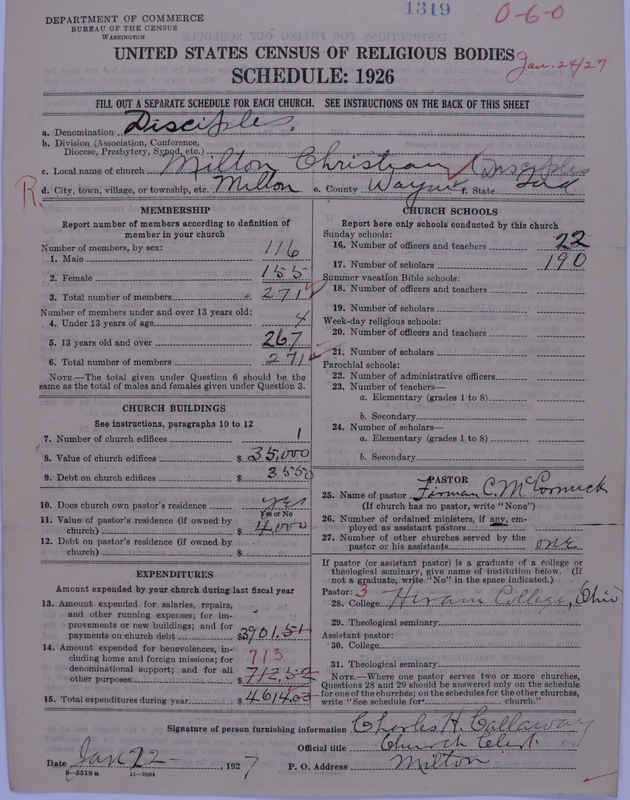 DEPARTMENT OF COMMERCE
BUREAU OF THE CENSUS
WASHINGTON
1319
0-6-0
UNITED STATES CENSUS OF RELIGIOUS BODIES
Jan. 24/27
SCHEDULE: 1926
FILL OUT A SEPARATE SCHEDULE FOR EACH CHURCH. SEE INSTRUCTIONS ON THE BACK OF THIS SHEET
a. Denomination Disciples.
b. Division (Association, Conference, Diocese, Presbytery, Synod, etc.)
c. Local name of church Milton Christian (Disciples
R. d. City, town, village, or township, etc. Milton e. County Wayne f. State Ind
MEMBERSHIP
Report number of members according to definition of member in your church
Number of members, by sex:
1. Male 116
2. Female 155
3. Total number of members 271
Number of members under and over 13 years old:
4. Under 13 years of age 4
5. 13 years old and over 267
6. Total number of members 271
NOTE.—The total given under Question 6 should be the same as the total of males and females given under Question 3.
CHURCH BUILDINGS
See instructions, paragraphs 10 to 12
7. Number of church edifices 1
8. Value of church edifices $ 35,000
9. Debt on church edifices $ 3550
10. Does church own pastor's residence yes
Yes or No
11. Value of pastor's residence (if owned by church) $ 4,000
12. Debt on pastor's residence (if owned by church) $
EXPENDITURES
Amount expended by your church during last fiscal year
13. Amount expended for salaries, repairs, and other running expenses; for improvements or new buildings; and for payments on church debt $3901.51
14. Amount expended for benevolences, including home and foreign missions; for denominational support; and for all other purposes 713 $712.52
15. Total expenditures during year $4614.03
CHURCH SCHOOLS
Report here only schools conducted by this church
Sunday schools:
16. Number of officers and teachers 22
17. Number of scholars 190
Summer vacation Bible schools:
18. Number of officers and teachers
19. Number of scholars
Week-day religious schools:
20. Number of officers and teachers
21. Number of scholars
Parochial schools:
22. Number of administrative officers
23. Number of teachers—
a. Elementary (grades 1 to 8)
b. Secondary
24. Number of scholars—
a. Elementary (grades 1 to 8)
b. Secondary
PASTOR
25. Name of pastor Firman C. McCormick
(If church has no pastor, write "None")
26. Number of ordained ministers, if any, employed as assistant pastors
27. Number of other churches served by the pastor or his assistants one
If pastor (or assistant pastor) is a graduate of a college or theological seminary, give name of institution below. (If not a graduate, write "No" in the space indicated.)
Pastor: 3
28. College Hiram College, Ohio
29. Theological seminary
Assistant pastor:
30. College
31. Theological seminary
NOTE.—Where one pastor serves two or more churches, Questions 28 and 29 should be answered only on the schedule for one of the churches; on the schedules for the other churches, write "See schedule for church."
Signature of person furnishing information Charles H. Callaway
Official title Church Clerk
Date Jan 22 , 1927 P. O. Address Milton
8-5518a 11-9054